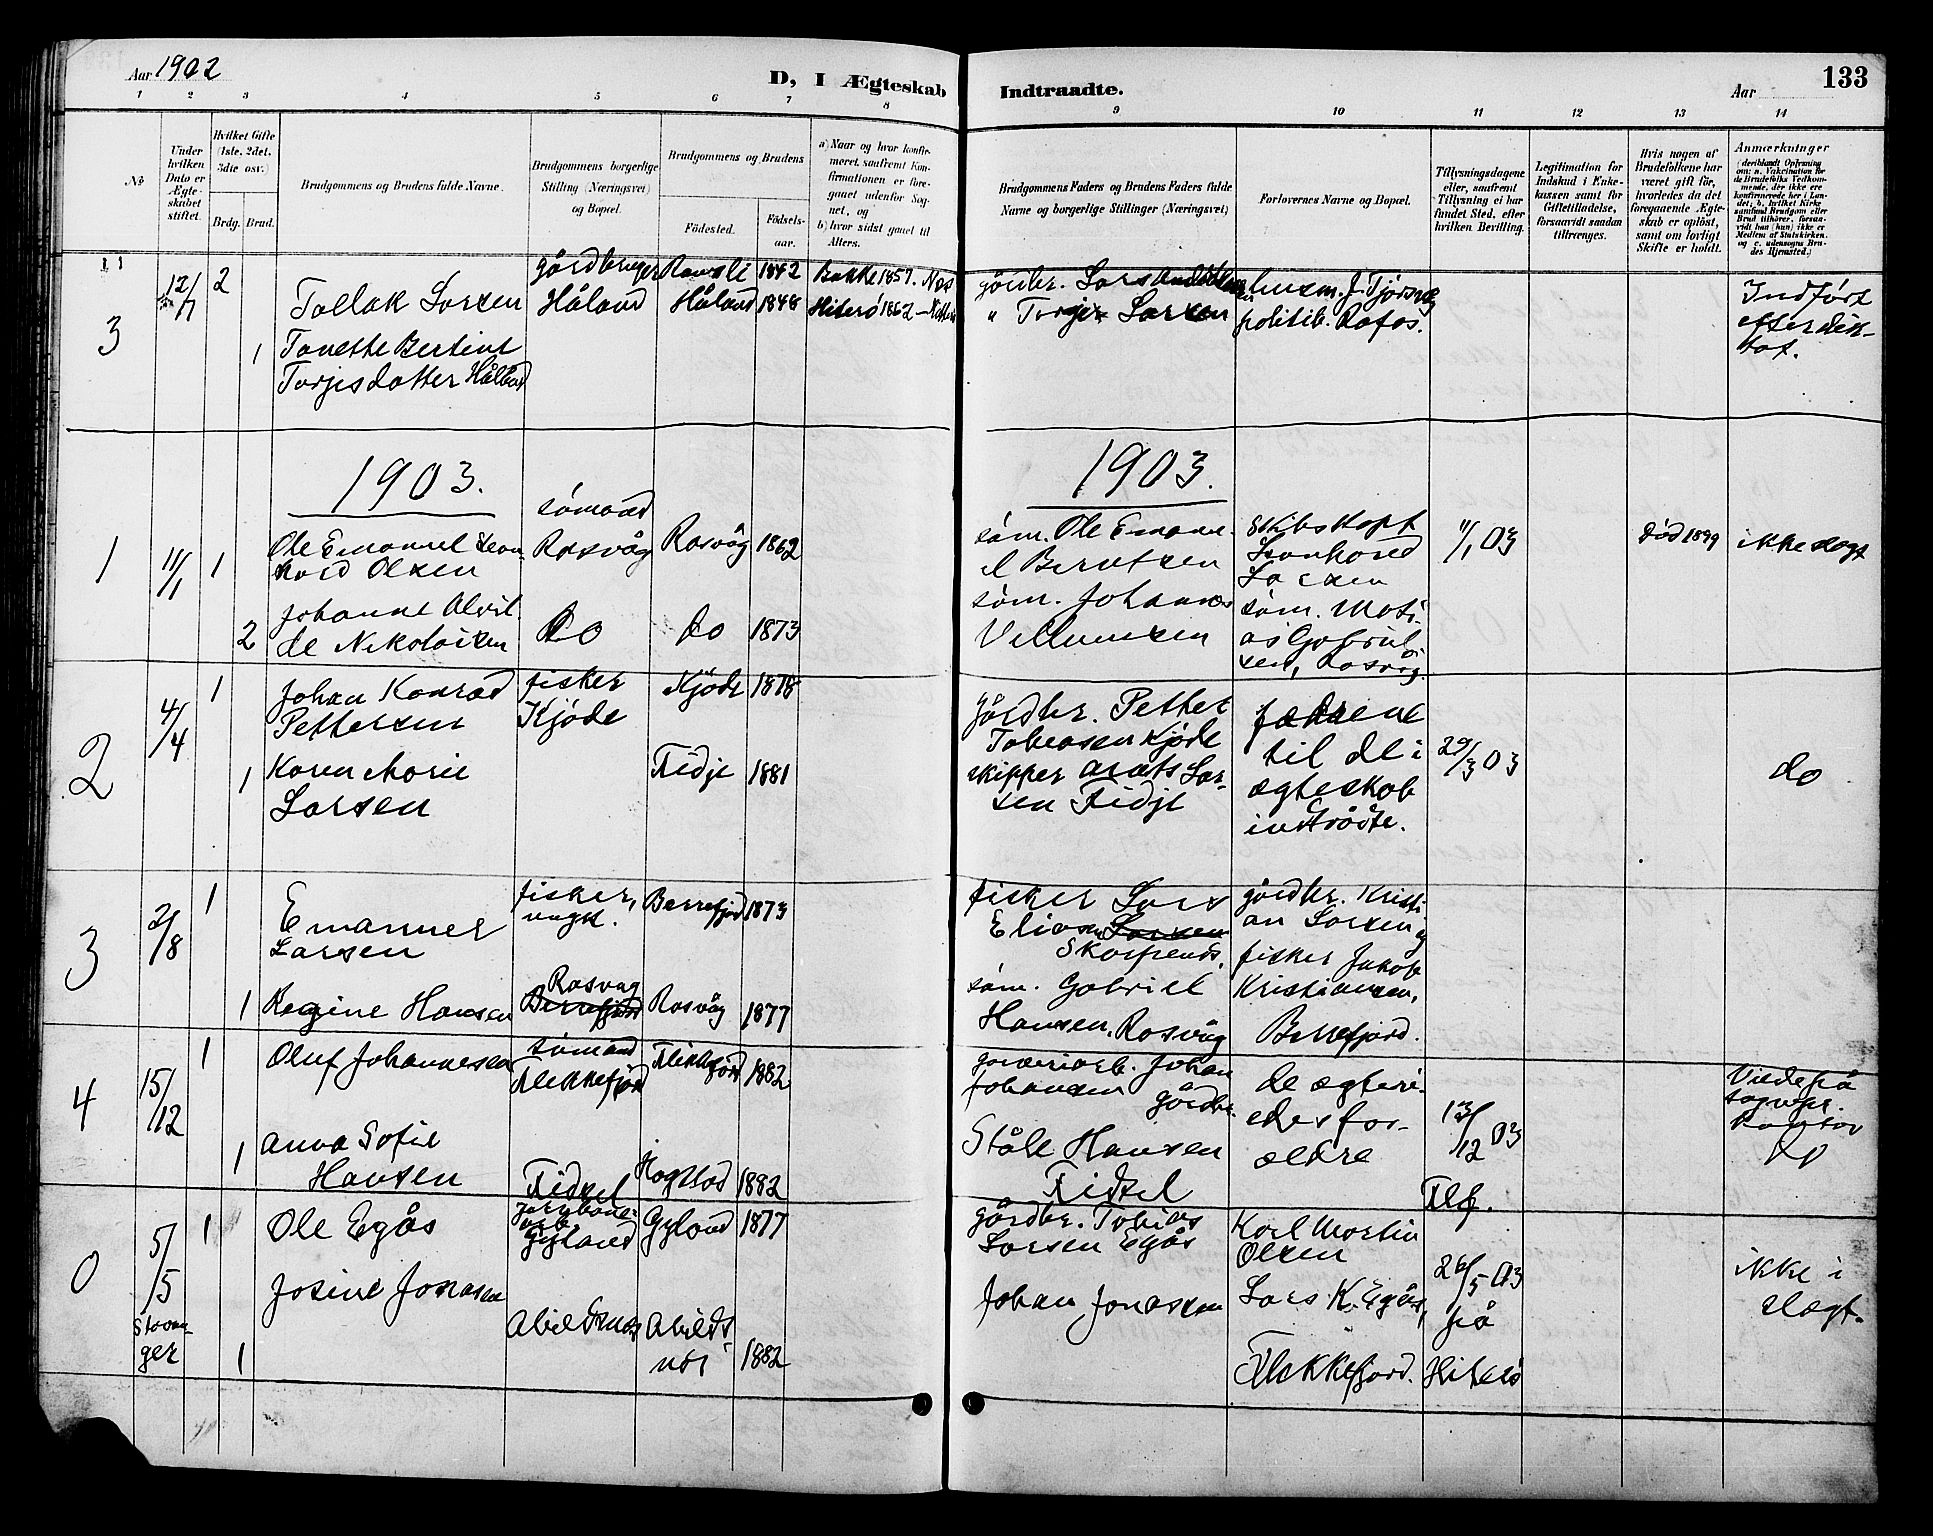 Aar 1902
D, I Ægteskab Indtraadte.
Aar
133
1 2 3 4 5 6 7 8 9 10 11 12 13 14
No
Under hvilken Dato er Ægteskabet stiftet.
Hvilket Gifte (1ste, 2det, 3die osv.)
Brdg. Brud.
Brudgommens og Brudens fulde Navne.
Brudgommens borgerlige Stilling (Næringsvei) og Bopæl.
Brudgommens og Brudens
Fødested.
Fødselsaar.
a) Naar og hvor konfirmeret, saafremt Konfirmationen er foregaaet udenfor Sognet, og
b) hvor sidst gaaet til Alters.
Brudgommens Faders og Brudens Faders fulde Navne og borgerlige Stillinger (Næringsvei)
Forlovernes Navne og Bopæl.
Tillysningsdagene eller, saafremt Tillysning ei har fundet Sted, efter hvilken Bevilling.
Legitimation for Indskud i Enkekassen samt for Giftetilladelse, forsaavidt saadan tiltrænges.
Hvis nogen af Brudefolkene har været gift før, hvorledes da det foregaaende Ægteskab er opløst, samt om lovligt Skifte er holdt.
Anmærkninger
(deriblandt Oplysning om: a. Vakcination for de Brudefolks Vedkommende, der ikke ere konfirmerede her i Landet; b. hvilket Kirkesamfund Brudgom eller Brud tilhører, forsaavidt han (hun) ikke er Medlem af Statskirken, og c. udensogns Brudes Hjemsted.)
3
12/7
2
Tollak Larsen
gårdbruger
Håland
1842
Bakke 1857. Nes
1
Tonette Bertine
Torjesdatter Håland
Håland
1848
Hiterö 1862
gårdbr. Lars
" Torjer Larsen
J. Tjörsvåg
politib. Rafos.
Indført
efter
1903.
1903.
1
11/1
1
Ole Emanuel Leon-
hard Olsen
sömand
Rasvåg
Rasvåg
1862
söm. Ole Emanu-
el Berntsen
Skibskapt
Leonhard
Larsen
11/1 03
død 1899
ikke slegt
2
Johanne Alvil-
de Nikolaisen
do
do
1873
söm. Johannes
Villumsen
söm. Mati-
as Gabriel-
sen, Rasvåg.
2
4/4
1
Johan Konrad
Pettersen
fisker
Kjöde
Kjöde
1878
gårdbr. Petter
Tobiasen Kjöde
fædrene
til de i
ægteskab
intrådte.
29/3 03
do
1
Karen Marie
Larsen
Fidje
1881
skipper Arnts Lar-
sen Fidje
3
2/8
1
Emanuel
Larsen
fisker,
ungk.
Berrefjord
1873
fisker Lars
Eliasen Larsen
gårdbr. Kristi
an Larsen og
fisker Jakob
Kristiansen,
Berrefjord.
1
Regine Hansen
Rasvåg
Berrefjord
Rasvåg
1877
söm. Gabriel
Hansen, Rasvåg
4
15/12
1
Oluf Johannesen
sömand
Flekkefjord
Flekkefjord
1882
garveriarb. Johan
Johansen
de ægtevi-
edes for-
ældre
13/12 03
Viede på
1
Anna Sofie
Hansen
Fidsel
Hogstad
1882
gårdbr.
Ståle Hansen
Fidsel
Flf.
0
5/5
Stavan-
ger
1
Ole Egås
Gyland
Gyland
1877
gårdbr. Tobias
Larsen Egås
Karl Martin
Olsen
Lars K. Egås,
Flekkefjord.
26/5 03
på
Hiterö
ikke i
slegt.
1
Josine Jonasen
Abildsnes
Abilds
nes
1882
Johan Jonassen